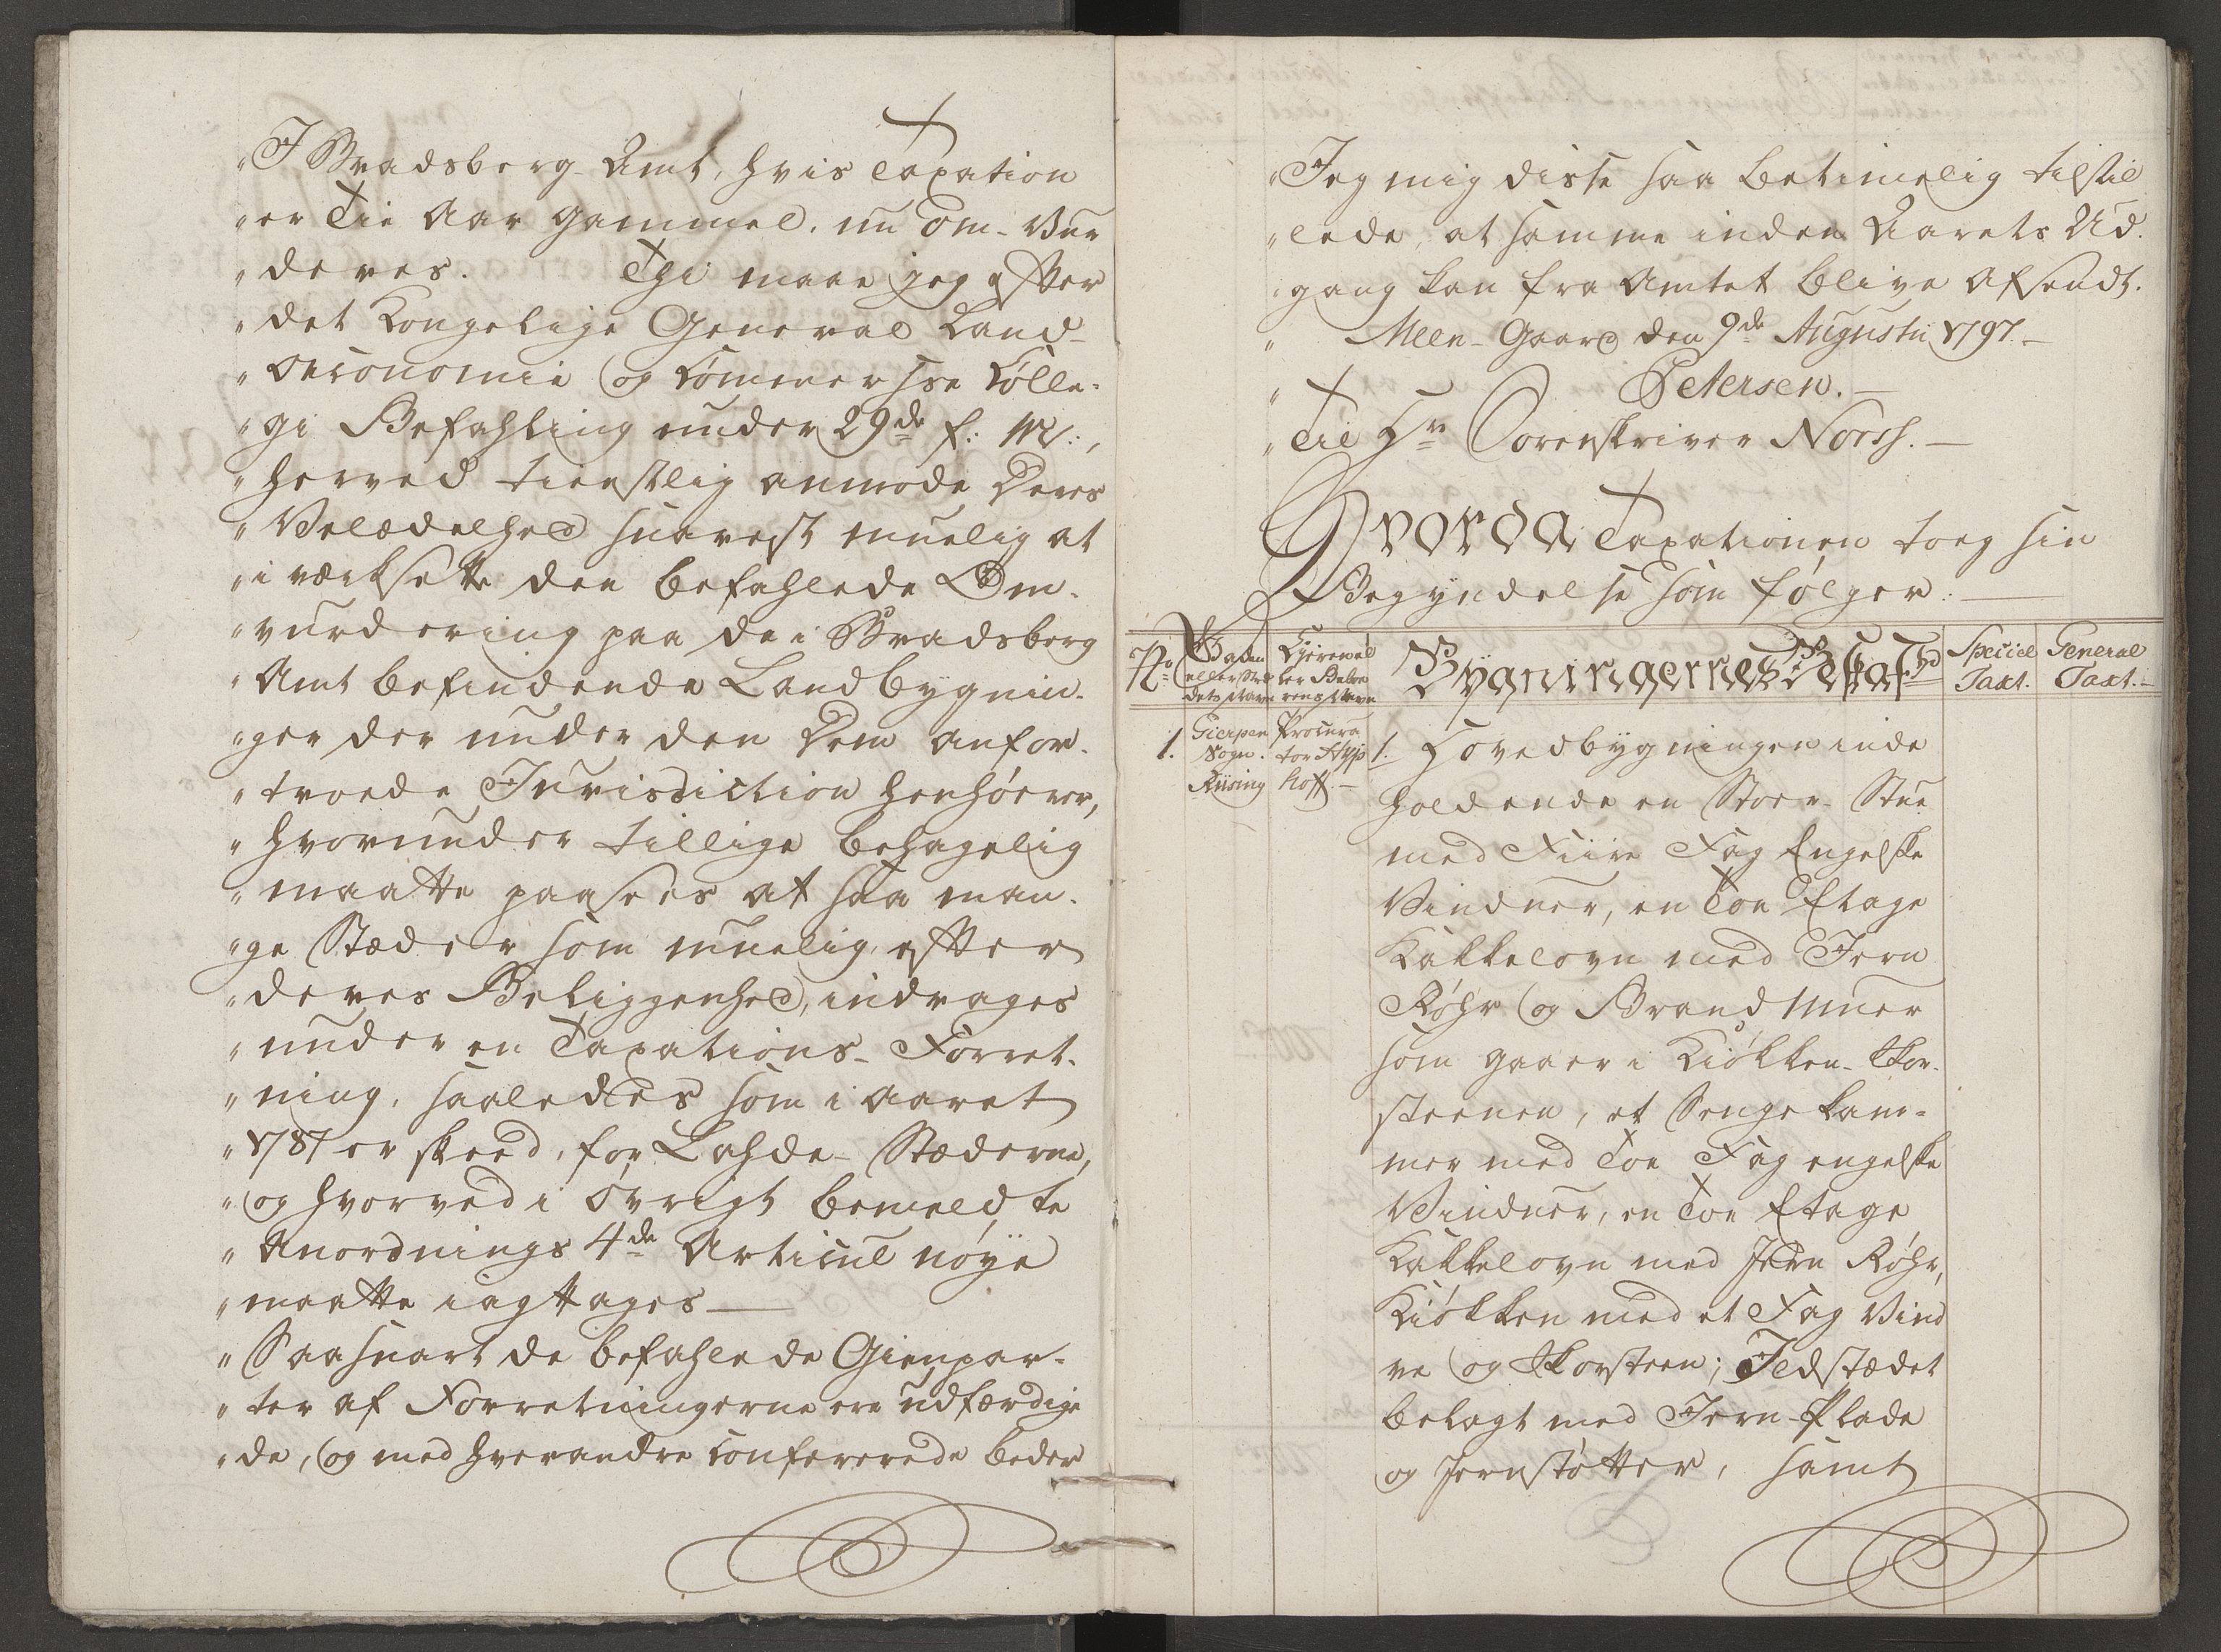 "I Bradsberg Amt, hvis Taxation
"er Tie Aar gammel, nu om-Vur
"deres. Thi maae jeg efter
"det Kongelige General Land-
"Oeconomie og Commerse Colle-
"gi Befahling under 29de f: M:,
"herved tienstlig anmode Deres
"Velædelhed snarest muelig at
"i værksette den befahlede Om-
"vurdering paa de i Bradsberg
"Amt befindende Landbygnin-
"ger der under den Dem anfor-
"troede Jurisdiction henhører,
"hvorunder tillige behagelig
"maatte paasees at saa man-
"ge Stæder som muelig, efter
"deres Beliggenhed, indrages
"under en Taxations-Forret-
"ning, saaledes som i Aaret
"1787 er skeed, for Lahde-Stæderne,
"og hvorved i øvrigt bemeldte
"Anordnings 4de Articul nøye
"maatte iagttages
"Saasnart de befahlede Gienpar-
"ter af Forretningerne ere udfærdige
"de, og med hverandre confererede beder
"Jeg mig disse saa betimelig tilstil
"lede, at samme inden Aarets Ud-
"gang kan fra Amtet blive afsendt.
" Meen-Gaard den 9de Augustii 1797.
" Petersen.
"Til Hr Sorenskriver Norsh.
Hvorda Taxationen toeg sin
Begyndelse som følger:
No Gaden eller Stædets Navn Ejeren eller Beboerens Navn Bygningernes Beskafhd Speciel Taxt. General Taxt.
1. Gierpen Procura 1. Hovedbygningen inde
Sogn. tor Hyp holdende en Stoer Stue
Riising hoff. med Fiire Fag Engelske
Vinduer, en Toe Etage
Kakkelovn med Jern
Røhr og Brand Muer
som gaaer i Kiøkken-Skor-
steenen, et Sengekam-
mer med Toe Fag engelske
Vinduer, en Toe Etage
Kakkelovn med Jern Røhr,
Kiøkken med et Fag Vind
ve og Skorsteen; Ildstædet
belagt med Jern-Plade
og Jernstøtter, samt